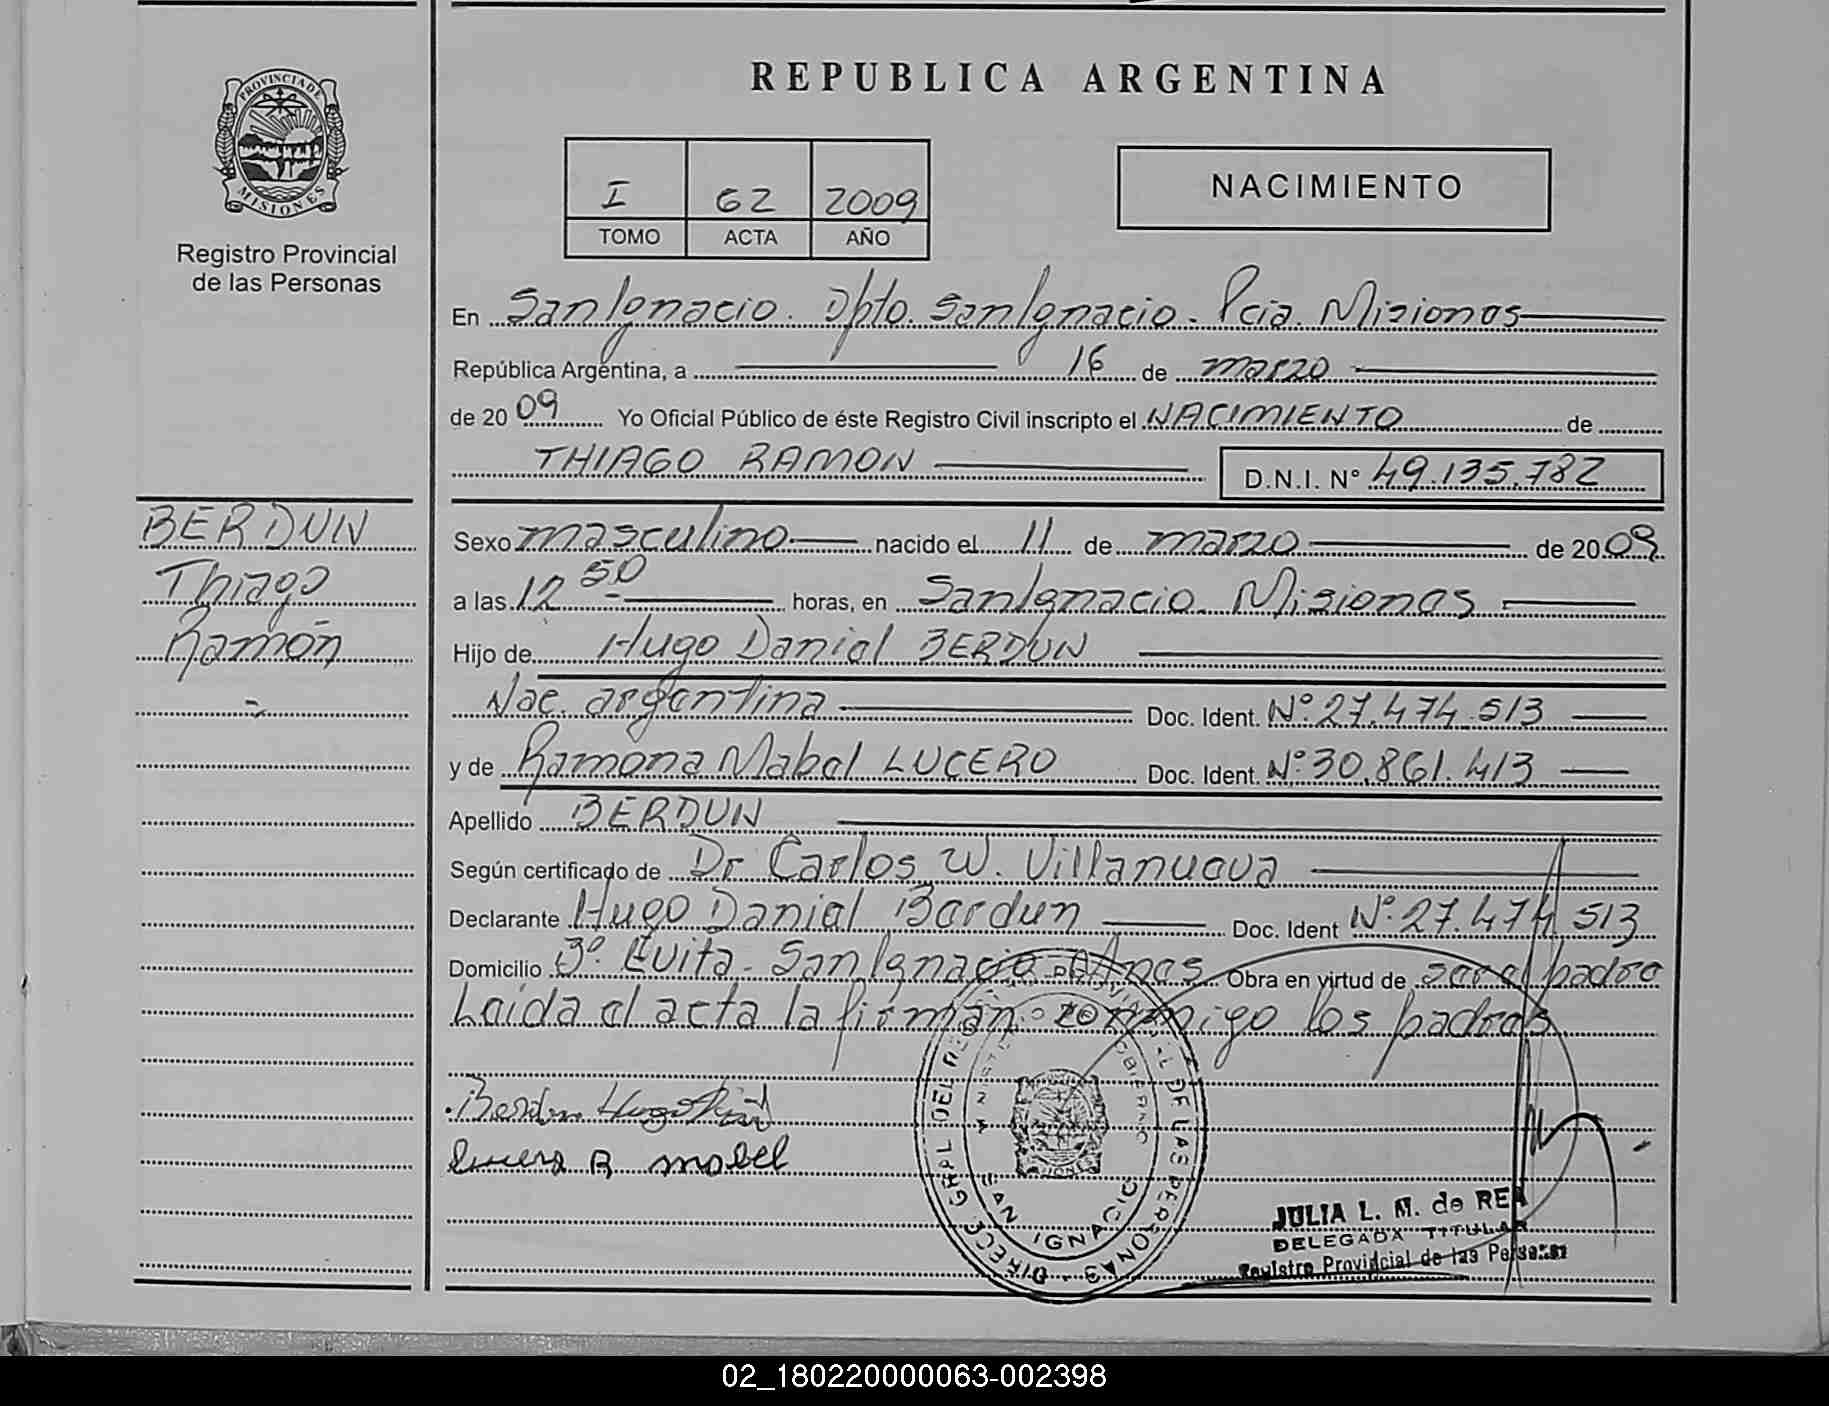 REPUBLICA ARGENTINA
PROVINCIA DE
MISIONES
Registro Provincial
de las Personas
I 62 2009
TOMO ACTA AÑO
NACIMIENTO
En San Ignacio. Dpto. San Ignacio. Pcia. Misiones
República Argentina, a 16 de marzo
de 2009 Yo Oficial Público de éste Registro Civil inscripto el NACIMIENTO de
THIAGO RAMON D.N.I. N° 49.135.782
BERDUN
Thiago
Ramón
Sexo masculino nacido el 11 de marzo de 2009
a las 12 50 horas, en San Ignacio. Misiones
Hijo de Hugo Daniel BERDUN
Nac. argentina Doc. Ident. N° 27.474.513
y de Ramona Mabel LUCERO Doc. Ident. N° 30.861.413
Apellido BERDUN
Según certificado de Dr Carlos W. Villanueva
Declarante Hugo Daniel Berdun Doc. Ident N° 27.474.513
Domicilio B° Evita - San Ignacio Mnes Obra en virtud de ser el padre
Leida el acta la firman conmigo los padres
Berdun Hugo Daniel
Lucero R mabel
DIRECC. GRAL. DEL REG. PROVINCIAL DE LAS PERSONAS
MINISTERIO DE GOBIERNO
SAN IGNACIO
JULIA L. M. de REA
DELEGADA TITULAR
Registro Provincial de las Personas
02_180220000063-002398